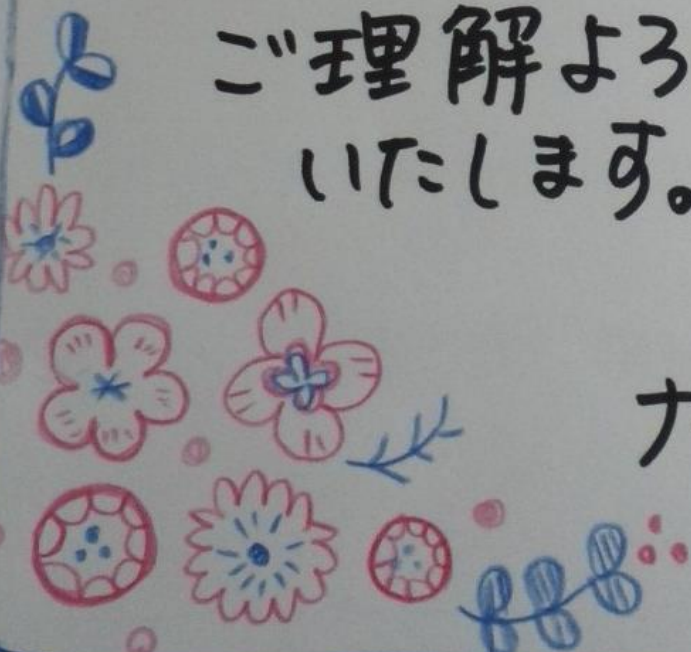 ご理解よろ
いたします。
ナ